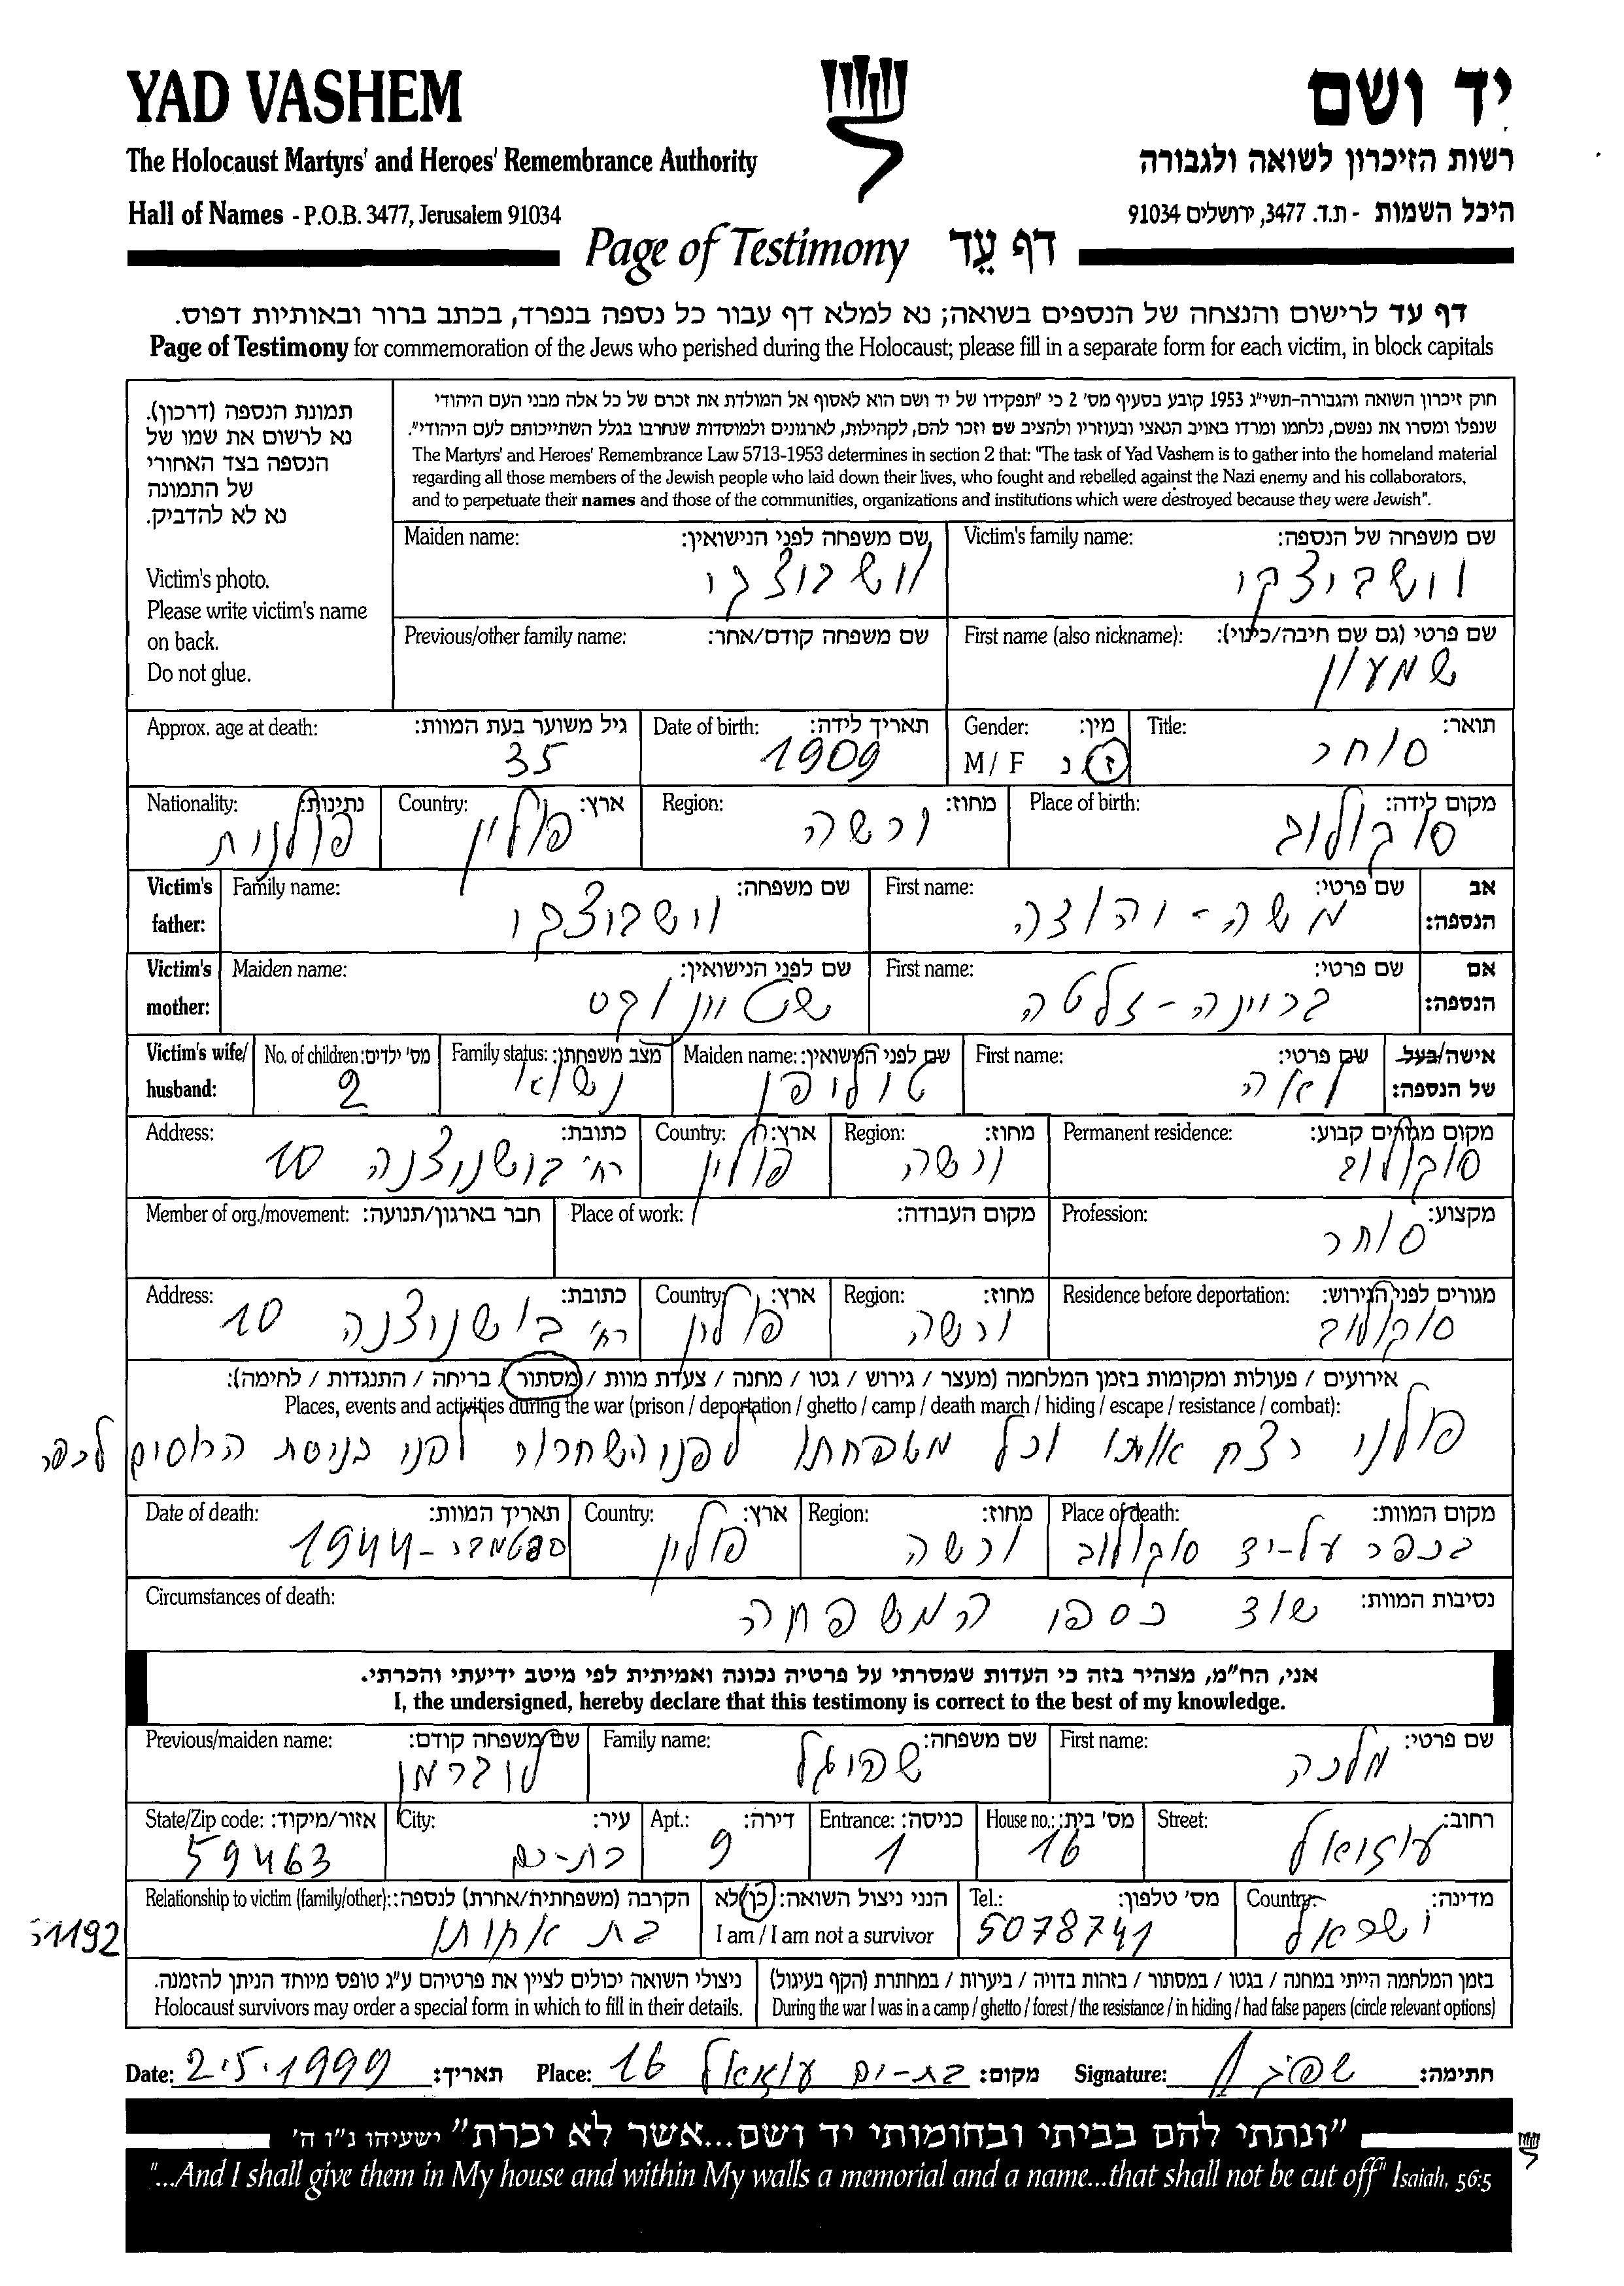 YAD VASHEM
יד ושם
The Holocaust Martyrs' and Heroes' Remembrance Authority
רשות הזיכרון לשואה ולגבורה
Hall of Names - P.O.B. 3477, Jerusalem 91034
היכל השמות - ת.ד. 3477, ירושלים 91034
Page of Testimony דף עֵד
דף עד לרישום והנצחה של הנספים בשואה; נא למלא דף עבור כל נספה בנפרד, בכתב ברור ובאותיות דפוס.
Page of Testimony for commemoration of the Jews who perished during the Holocaust; please fill in a separate form for each victim, in block capitals
תמונת הנספה (דרכון).
נא לרשום את שמו של
הנספה בצד האחורי
של התמונה
נא לא להדביק.
Victim's photo.
Please write victim's name
on back.
Do not glue.
חוק זיכרון השואה והגבורה-תשי"ג 1953 קובע בסעיף מס' 2 כי "תפקידו של יד ושם הוא לאסוף אל המולדת את זכרם של כל אלה מבני העם היהודי
שנפלו ומסרו את נפשם, נלחמו ומרדו באויב הנאצי ובעוזריו ולהציב שם וזכר להם, לקהילות, לארגונים ולמוסדות שנחרבו בגלל השתייכותם לעם היהודי".
The Martyrs' and Heroes' Remembrance Law 5713-1953 determines in section 2 that: "The task of Yad Vashem is to gather into the homeland material
regarding all those members of the Jewish people who laid down their lives, who fought and rebelled against the Nazi enemy and his collaborators,
and to perpetuate their names and those of the communities, organizations and institutions which were destroyed because they were Jewish".
Victim's family name: שם משפחה של הנספה:
וישביצקי
Maiden name: שם משפחה לפני הנישואין:
First name (also nickname): שם פרטי (גם שם חיבה/כינוי):
שמעון
Previous/other family name: שם משפחה קודם/אחר:
Title: תואר:
סוחר
Gender: מין:
M / F ז / נ
Date of birth: תאריך לידה:
1909
Approx. age at death: גיל משוער בעת המוות:
35
Place of birth: מקום לידה:
סוקולוב
Region: מחוז:
ורשה
Country: ארץ:
פולין
Nationality: נתינות:
פולנית
Victim's father: אב הנספה:
First name: שם פרטי:
משה-יהודה
Family name: שם משפחה:
Victim's mother: אם הנספה:
First name: שם פרטי:
ברוינה-זלטה
Maiden name: שם לפני הנישואין:
Victim's wife/husband: אישה/בעל של הנספה:
First name: שם פרטי:
לאה
Maiden name: שם לפני הנישואין:
טוליפן
Family status: מצב משפחתי:
נשוי
No. of children: מס' ילדים:
2
Permanent residence: מקום מגורים קבוע:
סוקולוב
Region: מחוז:
ורשה
Country: ארץ:
פולין
Address: כתובת:
רח' בושניצנה 10
Profession: מקצוע:
סוחר
Place of work: מקום העבודה:
Member of org./movement: חבר בארגון/תנועה:
Residence before deportation: מגורים לפני הגירוש:
סוקולוב
Region: מחוז:
ורשה
Country: ארץ:
פולין
Address: כתובת:
רח' בושניצנה 10
אירועים / פעולות ומקומות בזמן המלחמה (מעצר / גירוש / גטו / מחנה / צעדת מוות / מסתור / בריחה / התנגדות / לחימה):
Places, events and activities during the war (prison / deportation / ghetto / camp / death march / hiding / escape / resistance / combat):
פולני רצח אותו וכל משפחתו לפני השחרור לפני כניסת הרוסים לכפר
Place of death: מקום המוות:
בכפר על-יד סוקולוב
Region: מחוז:
ורשה
Country: ארץ:
פולין
Date of death: תאריך המוות:
ספטמבר-1944
Circumstances of death: נסיבות המוות:
שוד כספי המשפחה
אני, הח"מ, מצהיר בזה כי העדות שמסרתי על פרטיה נכונה ואמיתית לפי מיטב ידיעתי והכרתי.
I, the undersigned, hereby declare that this testimony is correct to the best of my knowledge.
First name: שם פרטי:
מלכה
Family name: שם משפחה:
שפיגל
Previous/maiden name: שם משפחה קודם:
לוברמן
Street: רחוב:
עוזיאל
House no.: מס' בית:
16
Entrance: כניסה:
1
Apt.: דירה:
9
City: עיר:
בת-ים
State/Zip code: אזור/מיקוד:
59463
Country: מדינה:
ישראל
Tel.: מס' טלפון:
5078741
הנני ניצול השואה: כן/לא
I am / I am not a survivor
Relationship to victim (family/other): הקרבה (משפחתית/אחרת) לנספה:
בת אחותו
51192
בזמן המלחמה הייתי במחנה / בגטו / במסתור / בזהות בדויה / ביערות / במחתרת (הקף בעיגול)
During the war I was in a camp / ghetto / forest / the resistance / in hiding / had false papers (circle relevant options)
ניצולי השואה יכולים לציין את פרטיהם ע"ג טופס מיוחד הניתן להזמנה.
Holocaust survivors may order a special form in which to fill in their details.
Date: 2.5.1999 תאריך: Place: בת-ים עוזיאל 16 מקום: Signature: חתימה:
"ונתתי להם בביתי ובחומותי יד ושם...אשר לא יכרת" ישעיהו נ"ו ה'
"...And I shall give them in My house and within My walls a memorial and a name...that shall not be cut off" Isaiah, 56:5